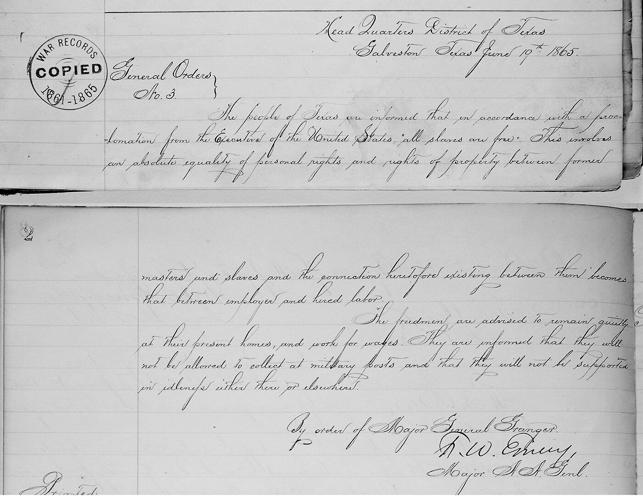 Head Quarters District of Texas
Galveston Texas June 19th 1865.
WAR RECORDS
COPIED
1861-1865
General Orders
No. 3.
The people of Texas are informed that in accordance with a proc-
lamation from the Executive of the United States, "all slaves are free". This involves
an absolute equality of personal rights and rights of property between former
2
masters and slaves and the connection heretofore existing between them becomes
that between employer and hired labor.
The freedmen are advised to remain quietly
at their present homes, and work for wages. They are informed that they will
not be allowed to collect at military posts and that they will not be supported
in idleness either there or elsewhere.
By order of Major General Granger
F. W. Emery,
Major A. A. Genl.
Printed